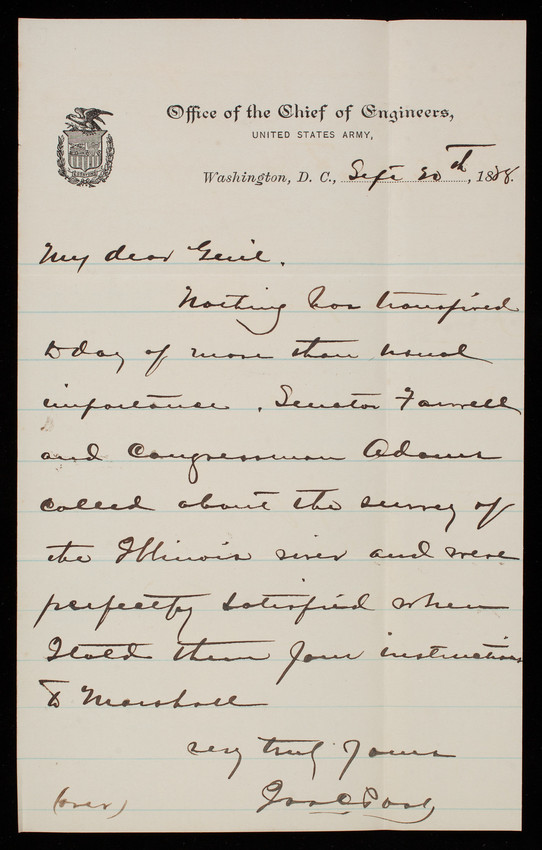 Office of the Chief of Engineers,
UNITED STATES ARMY,
Washington, D. C., Sept 20th, 1888.
My dear Genl.
Nothing has transpired
today of more than usual
importance. Senator Farwell
and Congressman Adams
called about the survey of
the Illinois river and were
perfectly satisfied when
I told them your instructions
to Marshall
very truly yours
Jas C Post
(over)